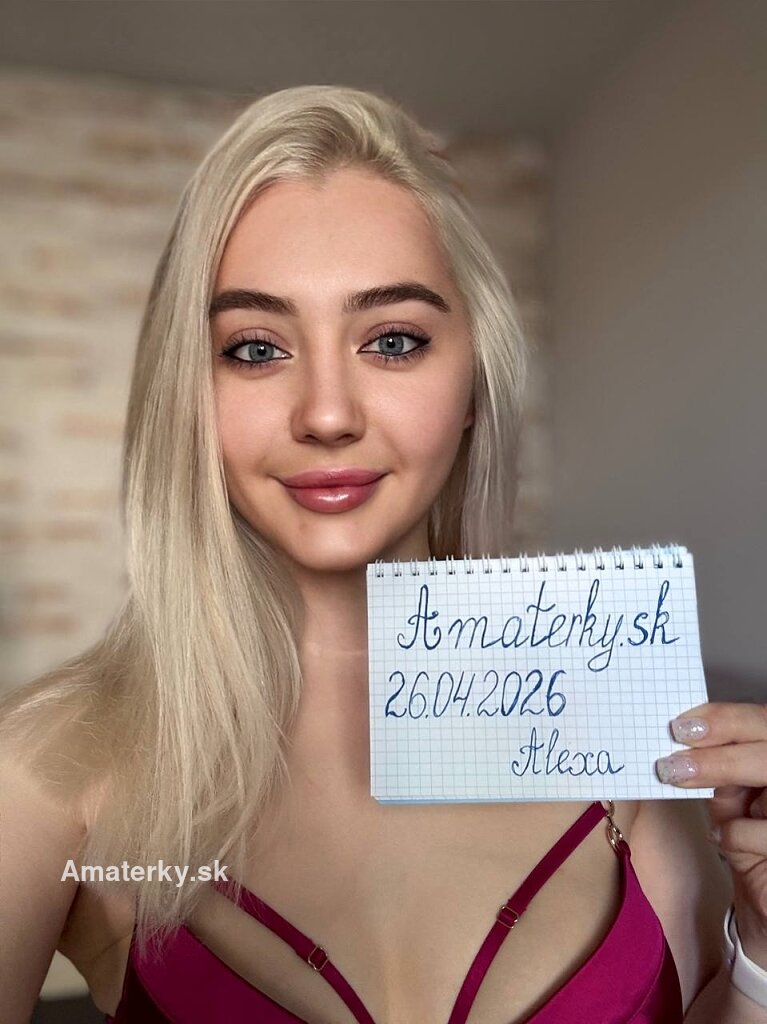 Amaterky.sk
26.04.2026
Alexa
Amaterky.sk